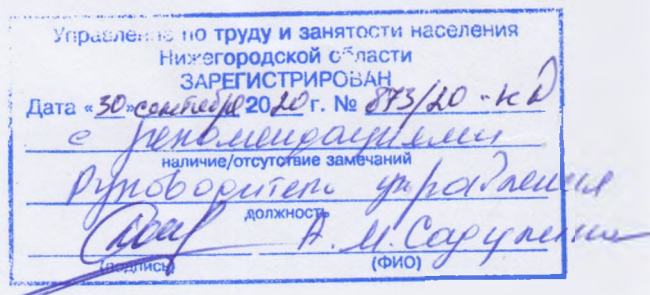 Управление по труду и занятости населения
Нижегородской области
ЗАРЕГИСТРИРОВАН
Дата «30» сентября 2020 г. № 873/20-КД
с рекомендациями
наличие/отсутствие замечаний
Руководитель управления
должность
А.М. Садулина
(подпись) (ФИО)